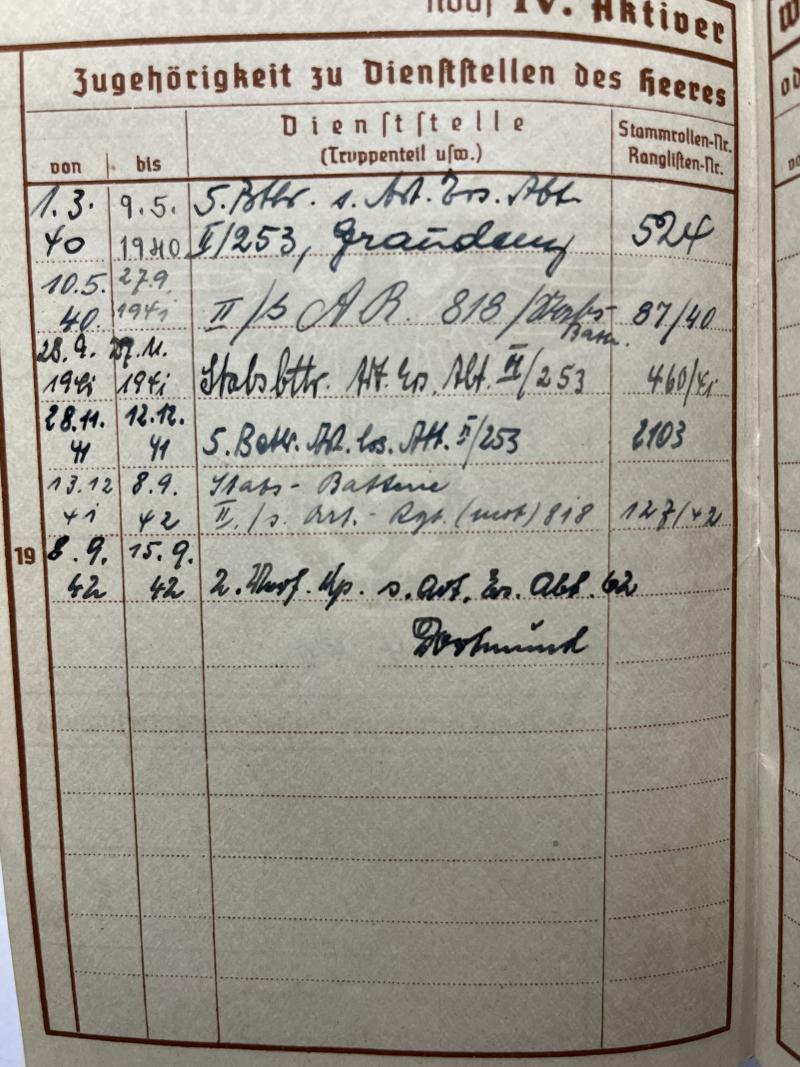 IV. Aktiver
Zugehörigkeit zu Dienststellen des Heeres
von bis Dienststelle (Truppenteil usw.) Stammrollen-Nr. Ranglisten-Nr.
1.3. 9.5. 5. Bttr. s. Art. Ers. Abt.
40 1940 II/253, Graudenz 524
10.5. 27.9.
40. 1941 II/s A R. 818 / Stabs- Battr. 87/40
28.9. 27.11.
1941 1941 Stabsbttr. Art. Ers. Abt. II/253 460/41
28.11. 12.12.
41 41 5. Battr. Art. Ers. Abt. II/253 2103
13.12 8.9. Stabs-Batterie
41 42 II./s. Art.-Rgt. (mot) 818 127/42
19 8.9. 15.9.
42 42 2. Kp. s. Art. Ers. Abt. 62
Dortmund